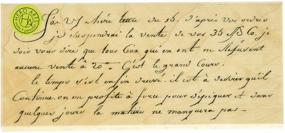 J'ai V/ chère lettre du 15, d'après vos ordres
je suspendrai la vente de vos 35 Blo, je
dois vous dire que tous ceux qui en ont m. refusent
aucune vente à 20 - C'est le grand cours.
le temps s'est enfin il est à désirer qu'il
Continue on en profite à force pour et dans
quelques jours la matière ne manquera pas -